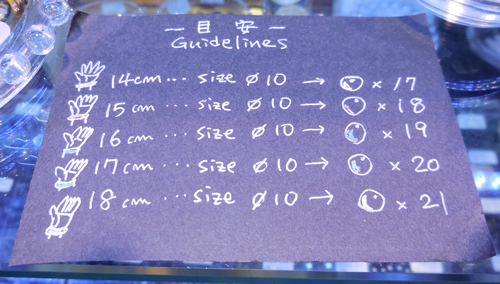 — 目安 —
Guidelines
14cm ... size ø10 → × 17
15cm ... size ø10 → × 18
16cm ... size ø10 → × 19
17cm ... size ø10 → × 20
18cm ... size ø10 → × 21